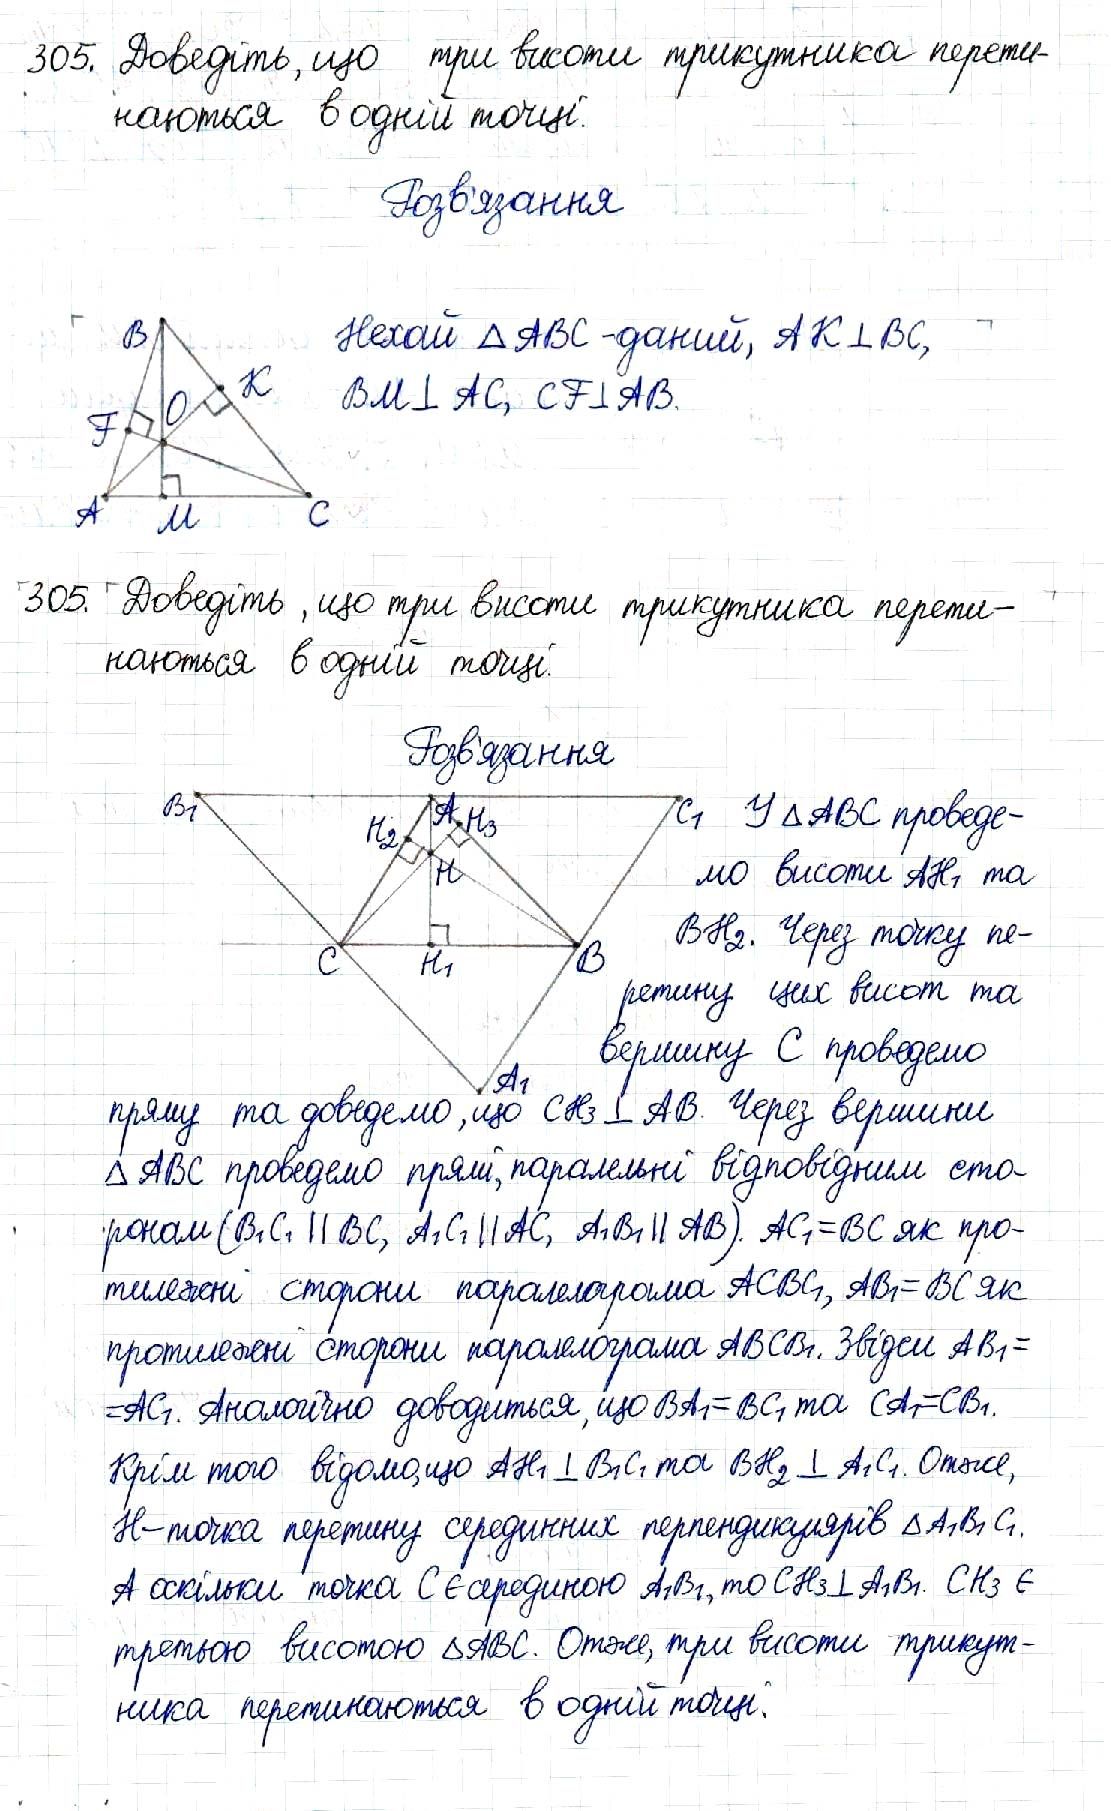 305. Доведіть, що три висоти трикутника перети-
наються в одній точці.
Розв'язання
B
K
O
F
A
M
C
Нехай △ABC - даний, AK⊥BC,
BM⊥ AC, CF⊥AB.
305. Доведіть, що три висоти трикутника перети-
наються в одній точці.
Розв'язання
B₁
A
C₁
H₂
H₃
H
C
H₁
B
A₁
У △ABC проведе-
мо висоти AH₁ та
BH₂. Через точку пе-
ретину цих висот та
вершину C проведемо
пряму та доведемо, що CH₃ ⊥ AB. Через вершини
△ABC проведемо прямі, паралельні відповідним сто-
ронам (B₁C₁ || BC, A₁C₁ || AC, A₁B₁ || AB). AC₁=BC як про-
тилежні сторони паралелограма ACBC₁, AB₁=BC як
протилежні сторони паралелограма ABCB₁. Звідси AB₁=
=AC₁. Аналогічно доводиться, що BA₁=BC₁ та CA₁=CB₁.
Крім того відомо, що AH₁ ⊥ B₁C₁ та BH₂ ⊥ A₁C₁. Отже,
H-точка перетину серединних перпендикулярів △A₁B₁C₁.
А оскільки точка C є серединою A₁B₁, то CH₃⊥A₁B₁. CH₃ є
третьою висотою △ABC. Отже, три висоти трикут-
ника перетинаються в одній точці.